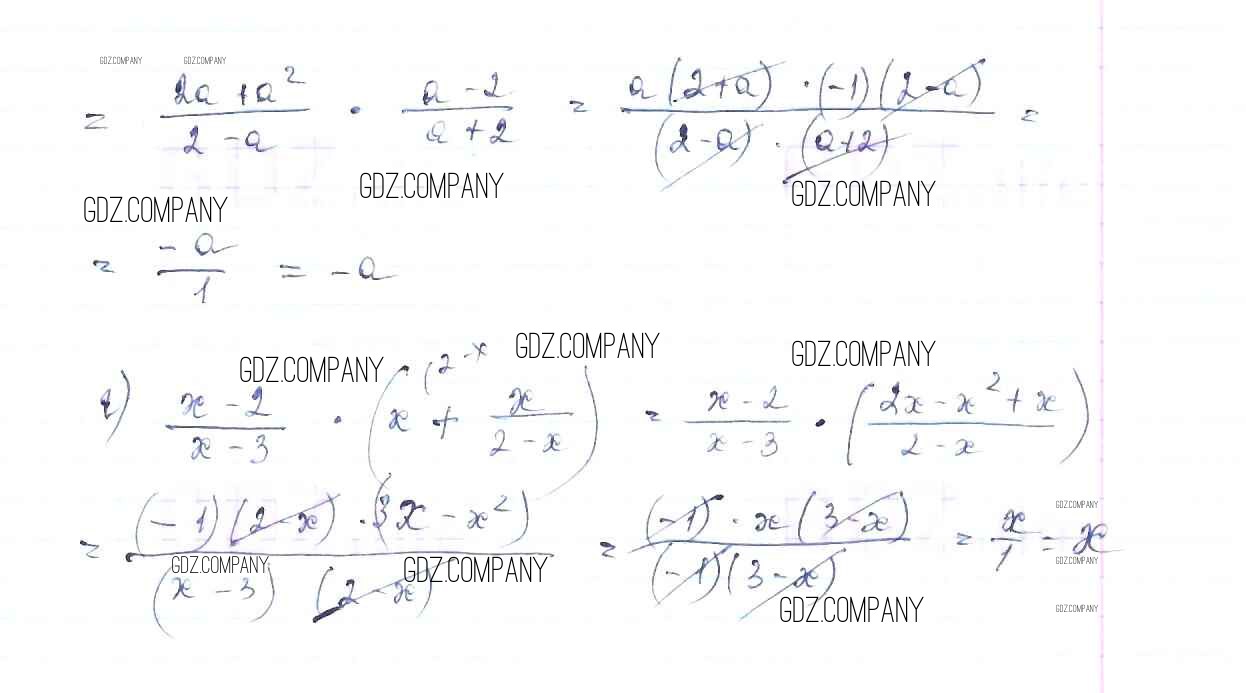 GDZ.COMPANY GDZ.COMPANY
= (2a + a²)/(2 - a) · (a - 2)/(a + 2) = (a(2+a) · (-1)(2-a))/((2-a) · (a+2)) =
GDZ.COMPANY GDZ.COMPANY GDZ.COMPANY
= -a/1 = -a
GDZ.COMPANY GDZ.COMPANY GDZ.COMPANY
г) (x - 2)/(x - 3) · (x^(2-x) + x/(2 - x)) = (x - 2)/(x - 3) · ((2x - x² + x)/(2 - x))
= ((-1)(2-x) · (3x - x²))/((x - 3)(2-x)) = ((-1) · x(3-x))/((-1)(3-x)) = x/1 = x
GDZ.COMPANY
GDZ.COMPANY GDZ.COMPANY GDZ.COMPANY
GDZ.COMPANY GDZ.COMPANY